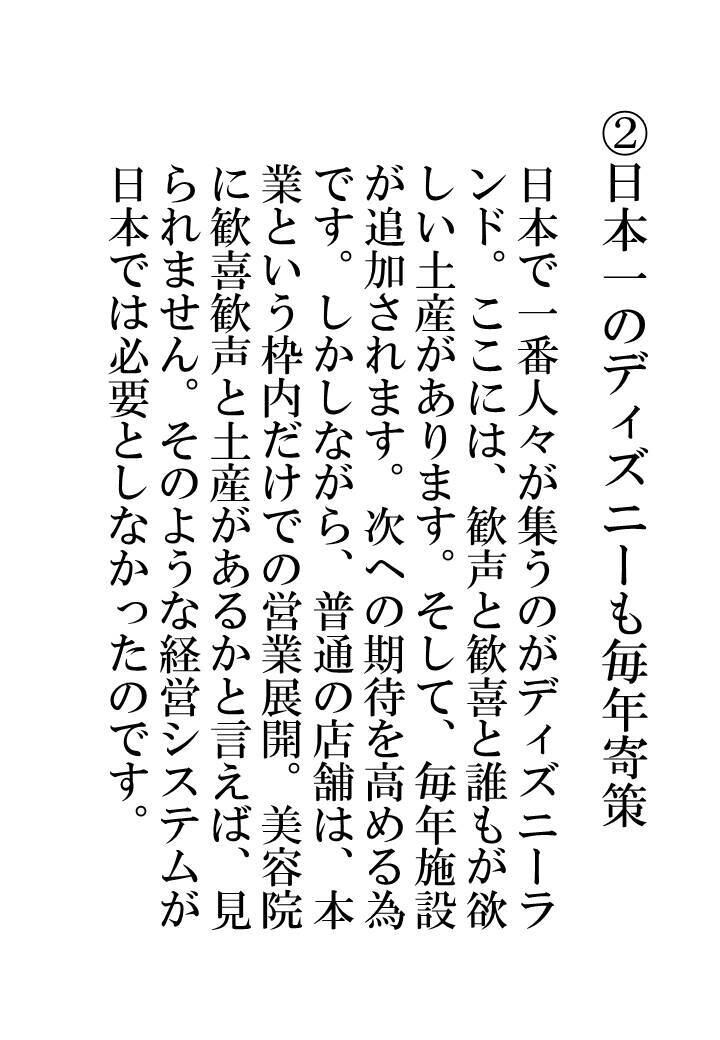 ②日本一のディズニーも毎年寄策
日本で一番人々が集うのがディズニーラ
ンド。ここには、歓声と歓喜と誰もが欲
しい土産があります。そして、毎年施設
が追加されます。次への期待を高める為
です。しかしながら、普通の店舗は、本
業という枠内だけでの営業展開。美容院
に歓喜歓声と土産があるかと言えば、見
られません。そのような経営システムが
日本では必要としなかったのです。